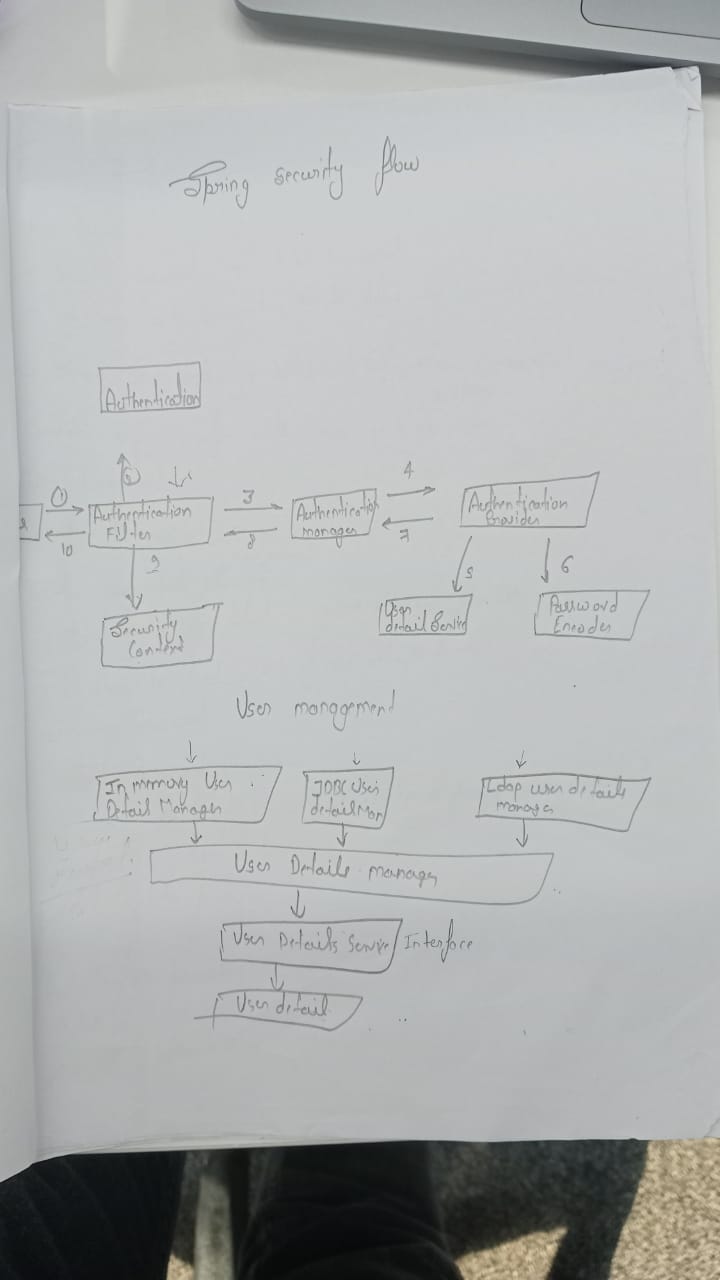 Spring security flow
Authentication
1
2
3
4
Authentication
Filter
Authentication
manager
Authentication
Provider
10
8
7
9
5
6
Security
Context
User
detail Service
Password
Encoder
User management
In memory User
Detail Manager
JDBC User
detail Man
Ldap user details
manager
User Details manager
User Details Service Interface
User detail